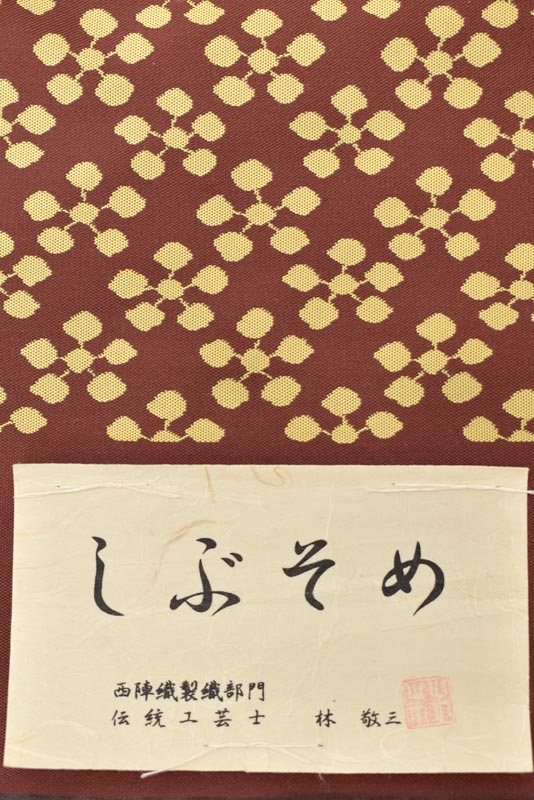 しぶそめ
西陣織製織部門
伝統工芸士 林 敬三